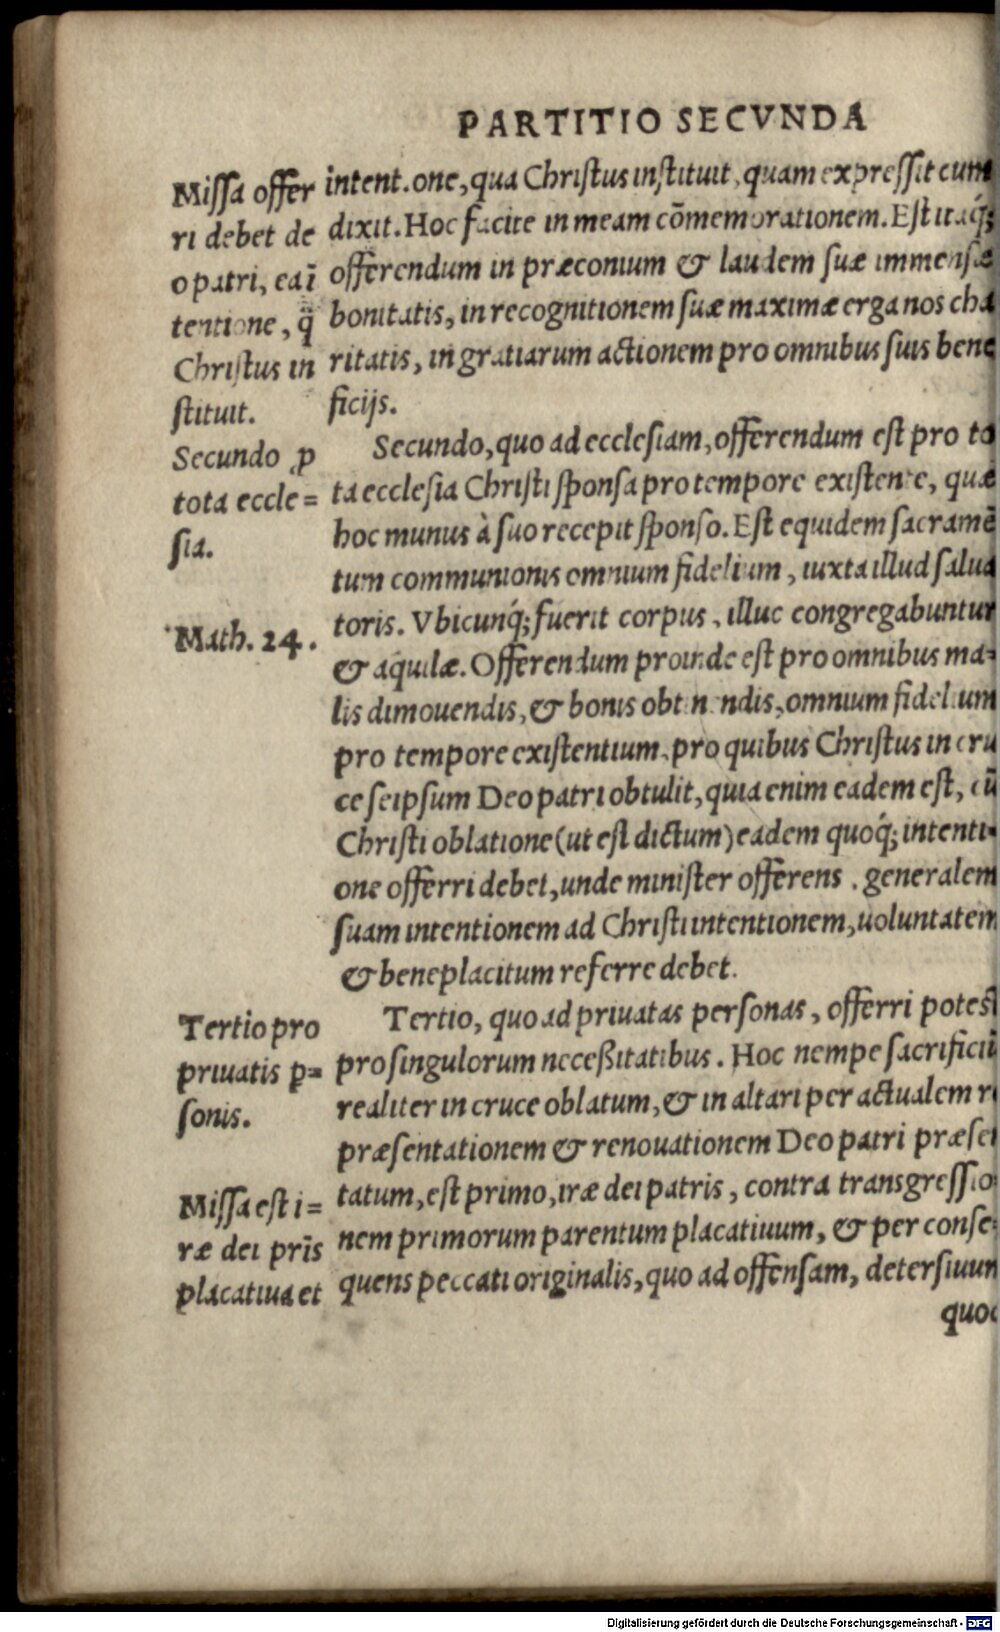 PARTITIO SECVNDA
Missa offer
ri debet de
o patri, ea ī
tentione, q̃
Christus in
stituit.
Secundo ꝓ
tota eccle=
sia.
Math. 24.
Tertio pro
priuatis ꝑ=
sonis.
Missa est i=
ræ dei pr̄is
placatiua et
intentione, qua Christus instituit, quam expressit cum
dixit. Hoc facite in meam cōmemorationem. Est itaq́;
offerendum in præconium & laudem suæ immensæ
bonitatis, in recognitionem suæ maximæ erga nos cha
ritatis, in gratiarum actionem pro omnibus suis bene
ficijs.
Secundo, quo ad ecclesiam, offerendum est pro to
ta ecclesia Christi sponsa pro tempore existente, quæ
hoc munus à suo recepit sponso. Est equidem sacramē
tum communionis omnium fidelium, iuxta illud salua
toris. Vbicunq́; fuerit corpus, illuc congregabuntur
& aquilæ. Offerendum proinde est pro omnibus ma=
lis dimouendis, & bonis obtinendis, omnium fidelium
pro tempore existentium, pro quibus Christus in cru
ce seipsum Deo patri obtulit, quia enim eadem est, cū
Christi oblatione (ut est dictum) eadem quoq́; intenti=
one offerri debet, unde minister offerens, generalem
suam intentionem ad Christi intentionem, uoluntatem
& beneplacitum referre debet.
Tertio, quo ad priuatas personas, offerri potest
pro singulorum necessitatibus. Hoc nempe sacrificiū
realiter in cruce oblatum, & in altari per actualem re
præsentationem & renouationem Deo patri præsen
tatum, est primo, iræ dei patris, contra transgressio=
nem primorum parentum placatiuum, & per conse=
quens peccati originalis, quo ad offensam, detersiuum
quod
Digitalisierung gefördert durch die Deutsche Forschungsgemeinschaft - DFG